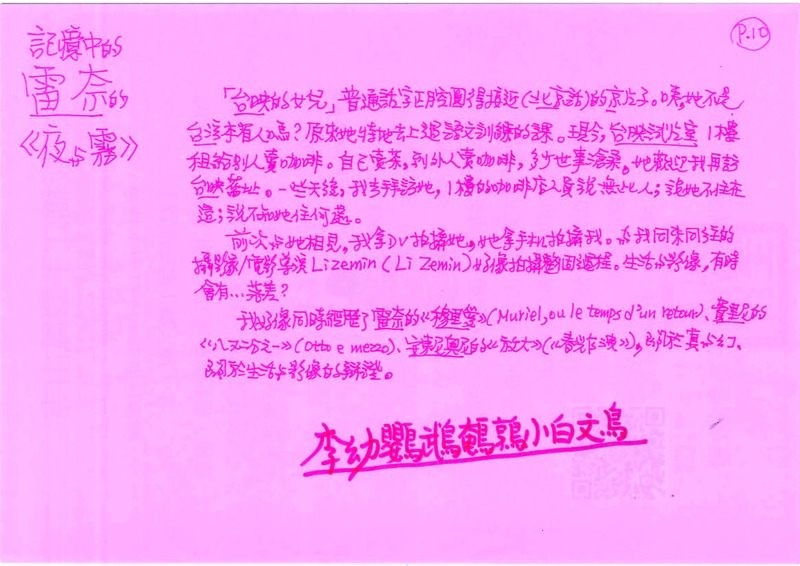 P.10
記憶中的
雷奈的
《夜與霧》
「台映的女兒」普通話字正腔圓得接近(北京話)的京片子。咦,她不是
台灣本省人嗎?原來她特地去上過語文訓練的課。現今,台映試片室1樓
租給別人賣咖啡。自己賣茶,到外人賣咖啡,多少世事滄桑。她歡迎我再訪
台映舊址。一些天後,我去拜訪她,1樓的咖啡店人員說無此人;說她不住在
這;說不知她住何處。
前次與她相見,我拿DV拍攝她,她拿手機拍攝我。與我同來同往的
攝影家/電影導演Li Zemin(Li Zemin)好像拍攝整個過程。生活與影像,有時
會有…落差?
我好像同時經歷了雷奈的《穆里愛》(Muriel, ou le temps d'un retour)、費里尼的
《八又二分之一》(Otto e mezzo)、安東尼奧尼的《放大》(《春光乍洩》),關於真與幻、
關於生活與影像的辯證。
李幼鸚鵡鵪鶉小白文鳥